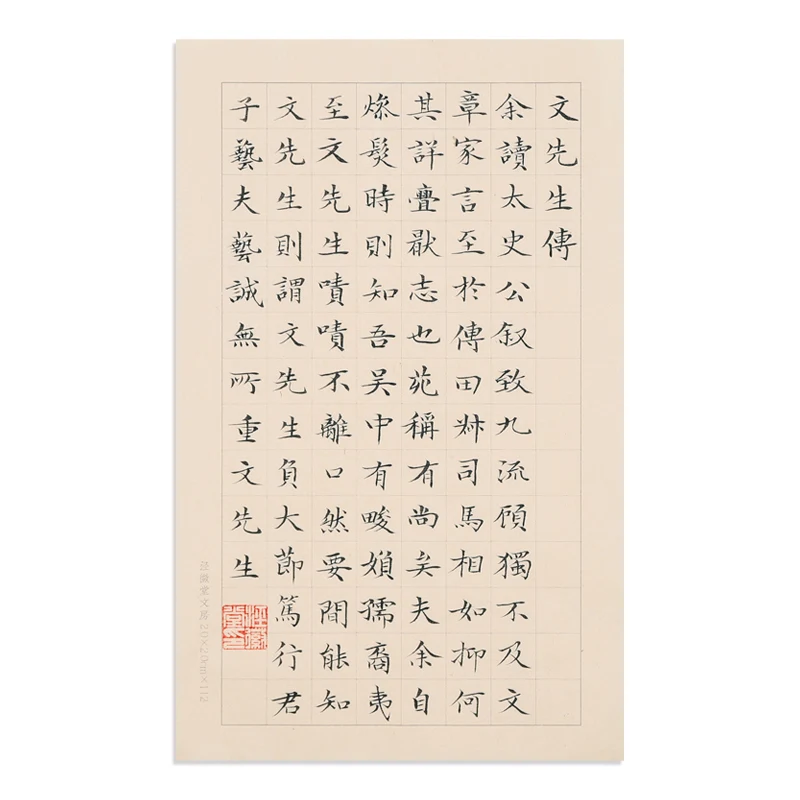 文先生傳
余讀太史公叙致九流顧獨不及文
章家言至於傳田叔司馬相如抑何
其詳疊猒志也苑稱有尚矣夫余自
燥髮時則知吾吴中有畯媍孺裔夷
至文先生嘖嘖不離口然要間能知
文先生則謂文先生負大節篤行君
子藝夫藝誠無所重文先生